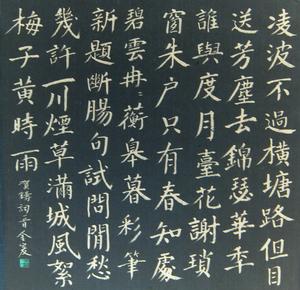 凌波不過橫塘路但目
送芳塵去錦瑟華年
誰與度月臺花謝瑣
窗朱户只有春知處
碧雲冉冉蘅皋暮彩筆
新題斷腸句試問閒愁
幾許一川煙草滿城風絮
梅子黃時雨
賀鑄詞